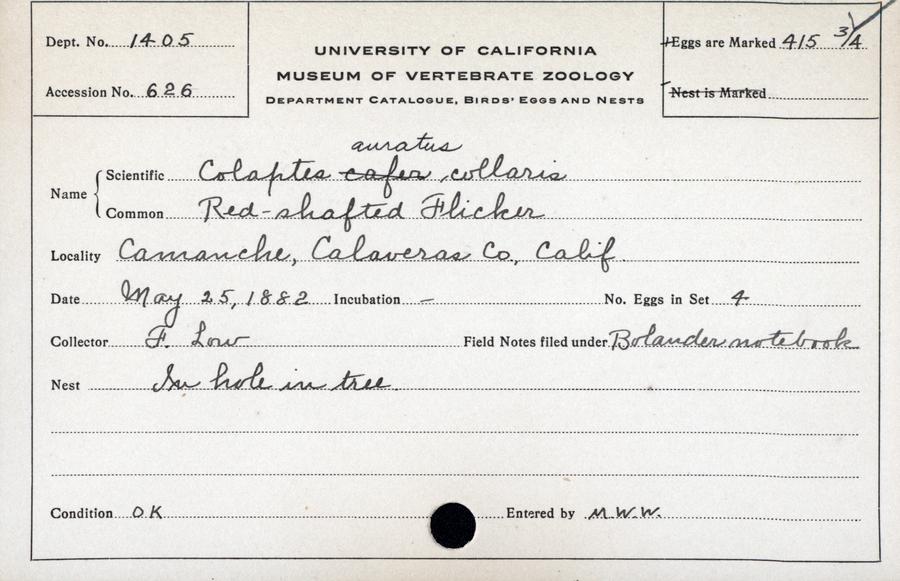 Dept. No. 1405
Accession No. 626
UNIVERSITY OF CALIFORNIA
MUSEUM OF VERTEBRATE ZOOLOGY
DEPARTMENT CATALOGUE, BIRDS' EGGS AND NESTS
Eggs are Marked 415 3/4
Nest is Marked
auratus
Name Scientific Colaptes cafer collaris
Common Red-shafted Flicker
Locality Camanche, Calaveras Co, Calif.
Date May 25, 1882 Incubation – No. Eggs in Set 4
Collector F. Low Field Notes filed under Bolander notebook
Nest In hole in tree.
Condition OK Entered by M.W.W.